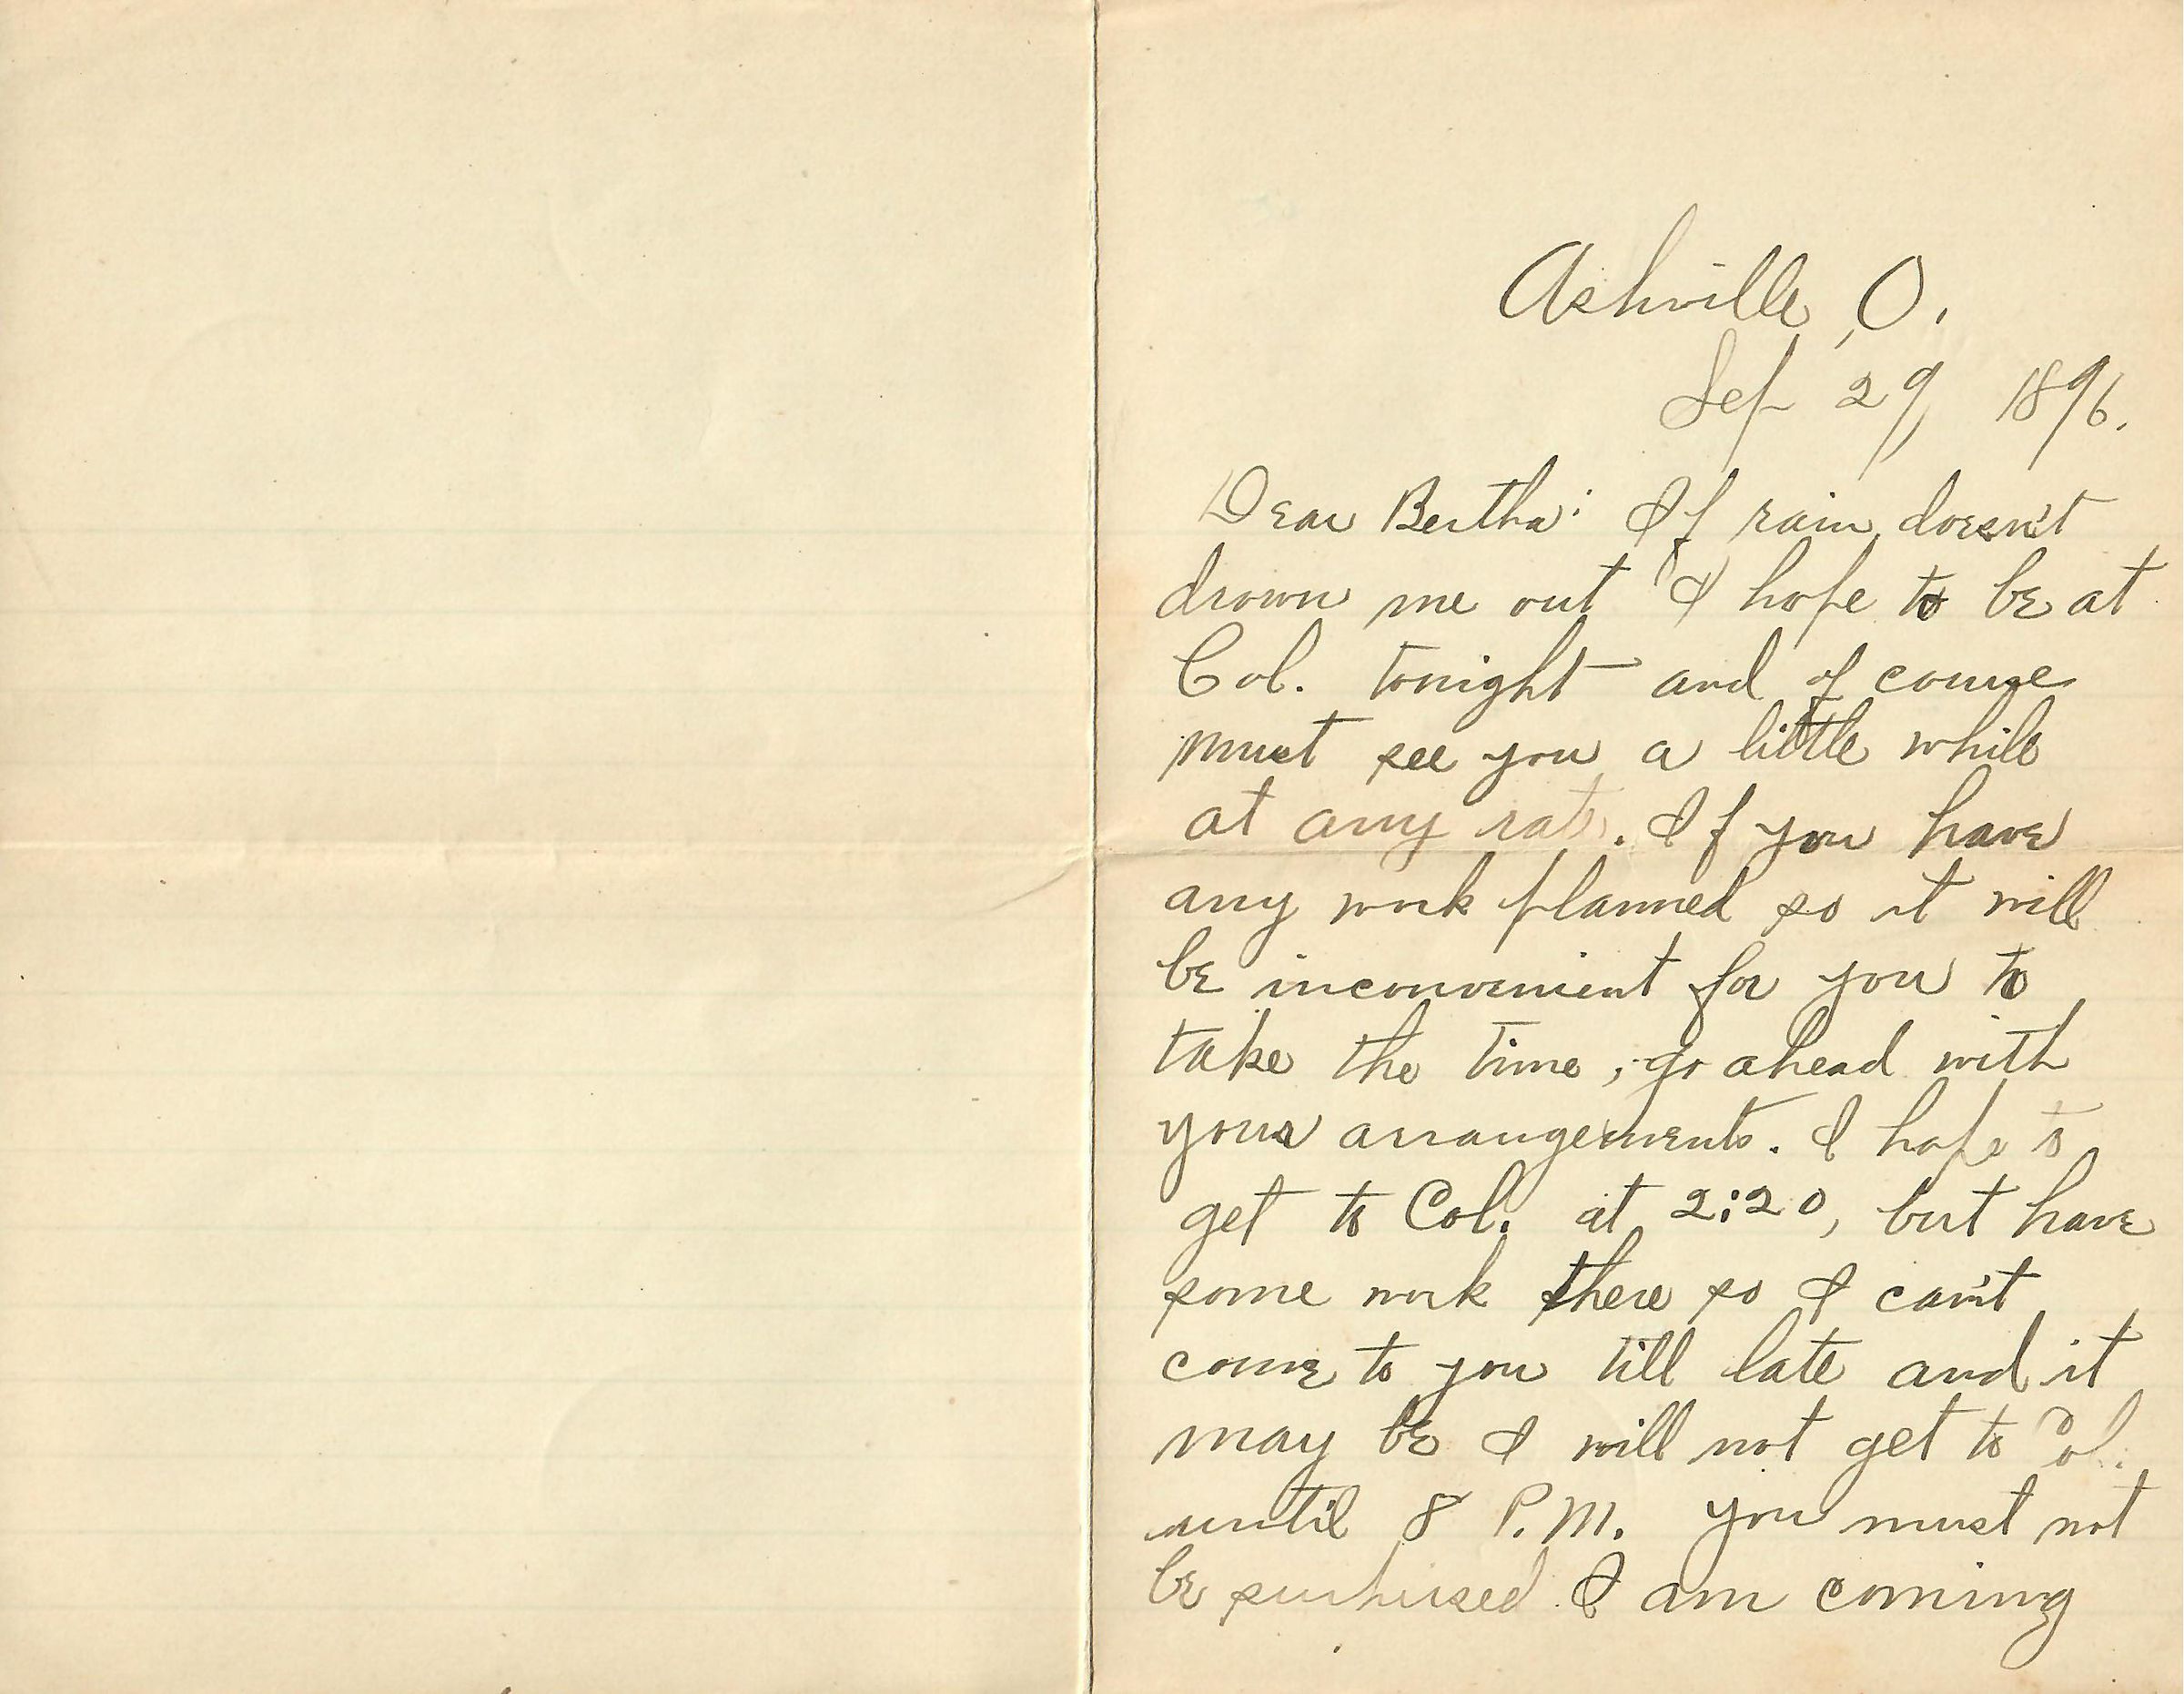 Ashville, O.
Sep 29, 1896.
Dear Bertha: If rain doesn't
drown me out I hope to be at
Col. tonight and of course
must see you a little while
at any rate. If you have
any work planned so it will
be inconvenient for you to
take the time, go ahead with
your arrangements. I hope to
get to Col. at 2:20, but have
some work there so I can't
come to you till late and it
may be I will not get to Col.
until 8 P.M. You must not
be surprised I am coming